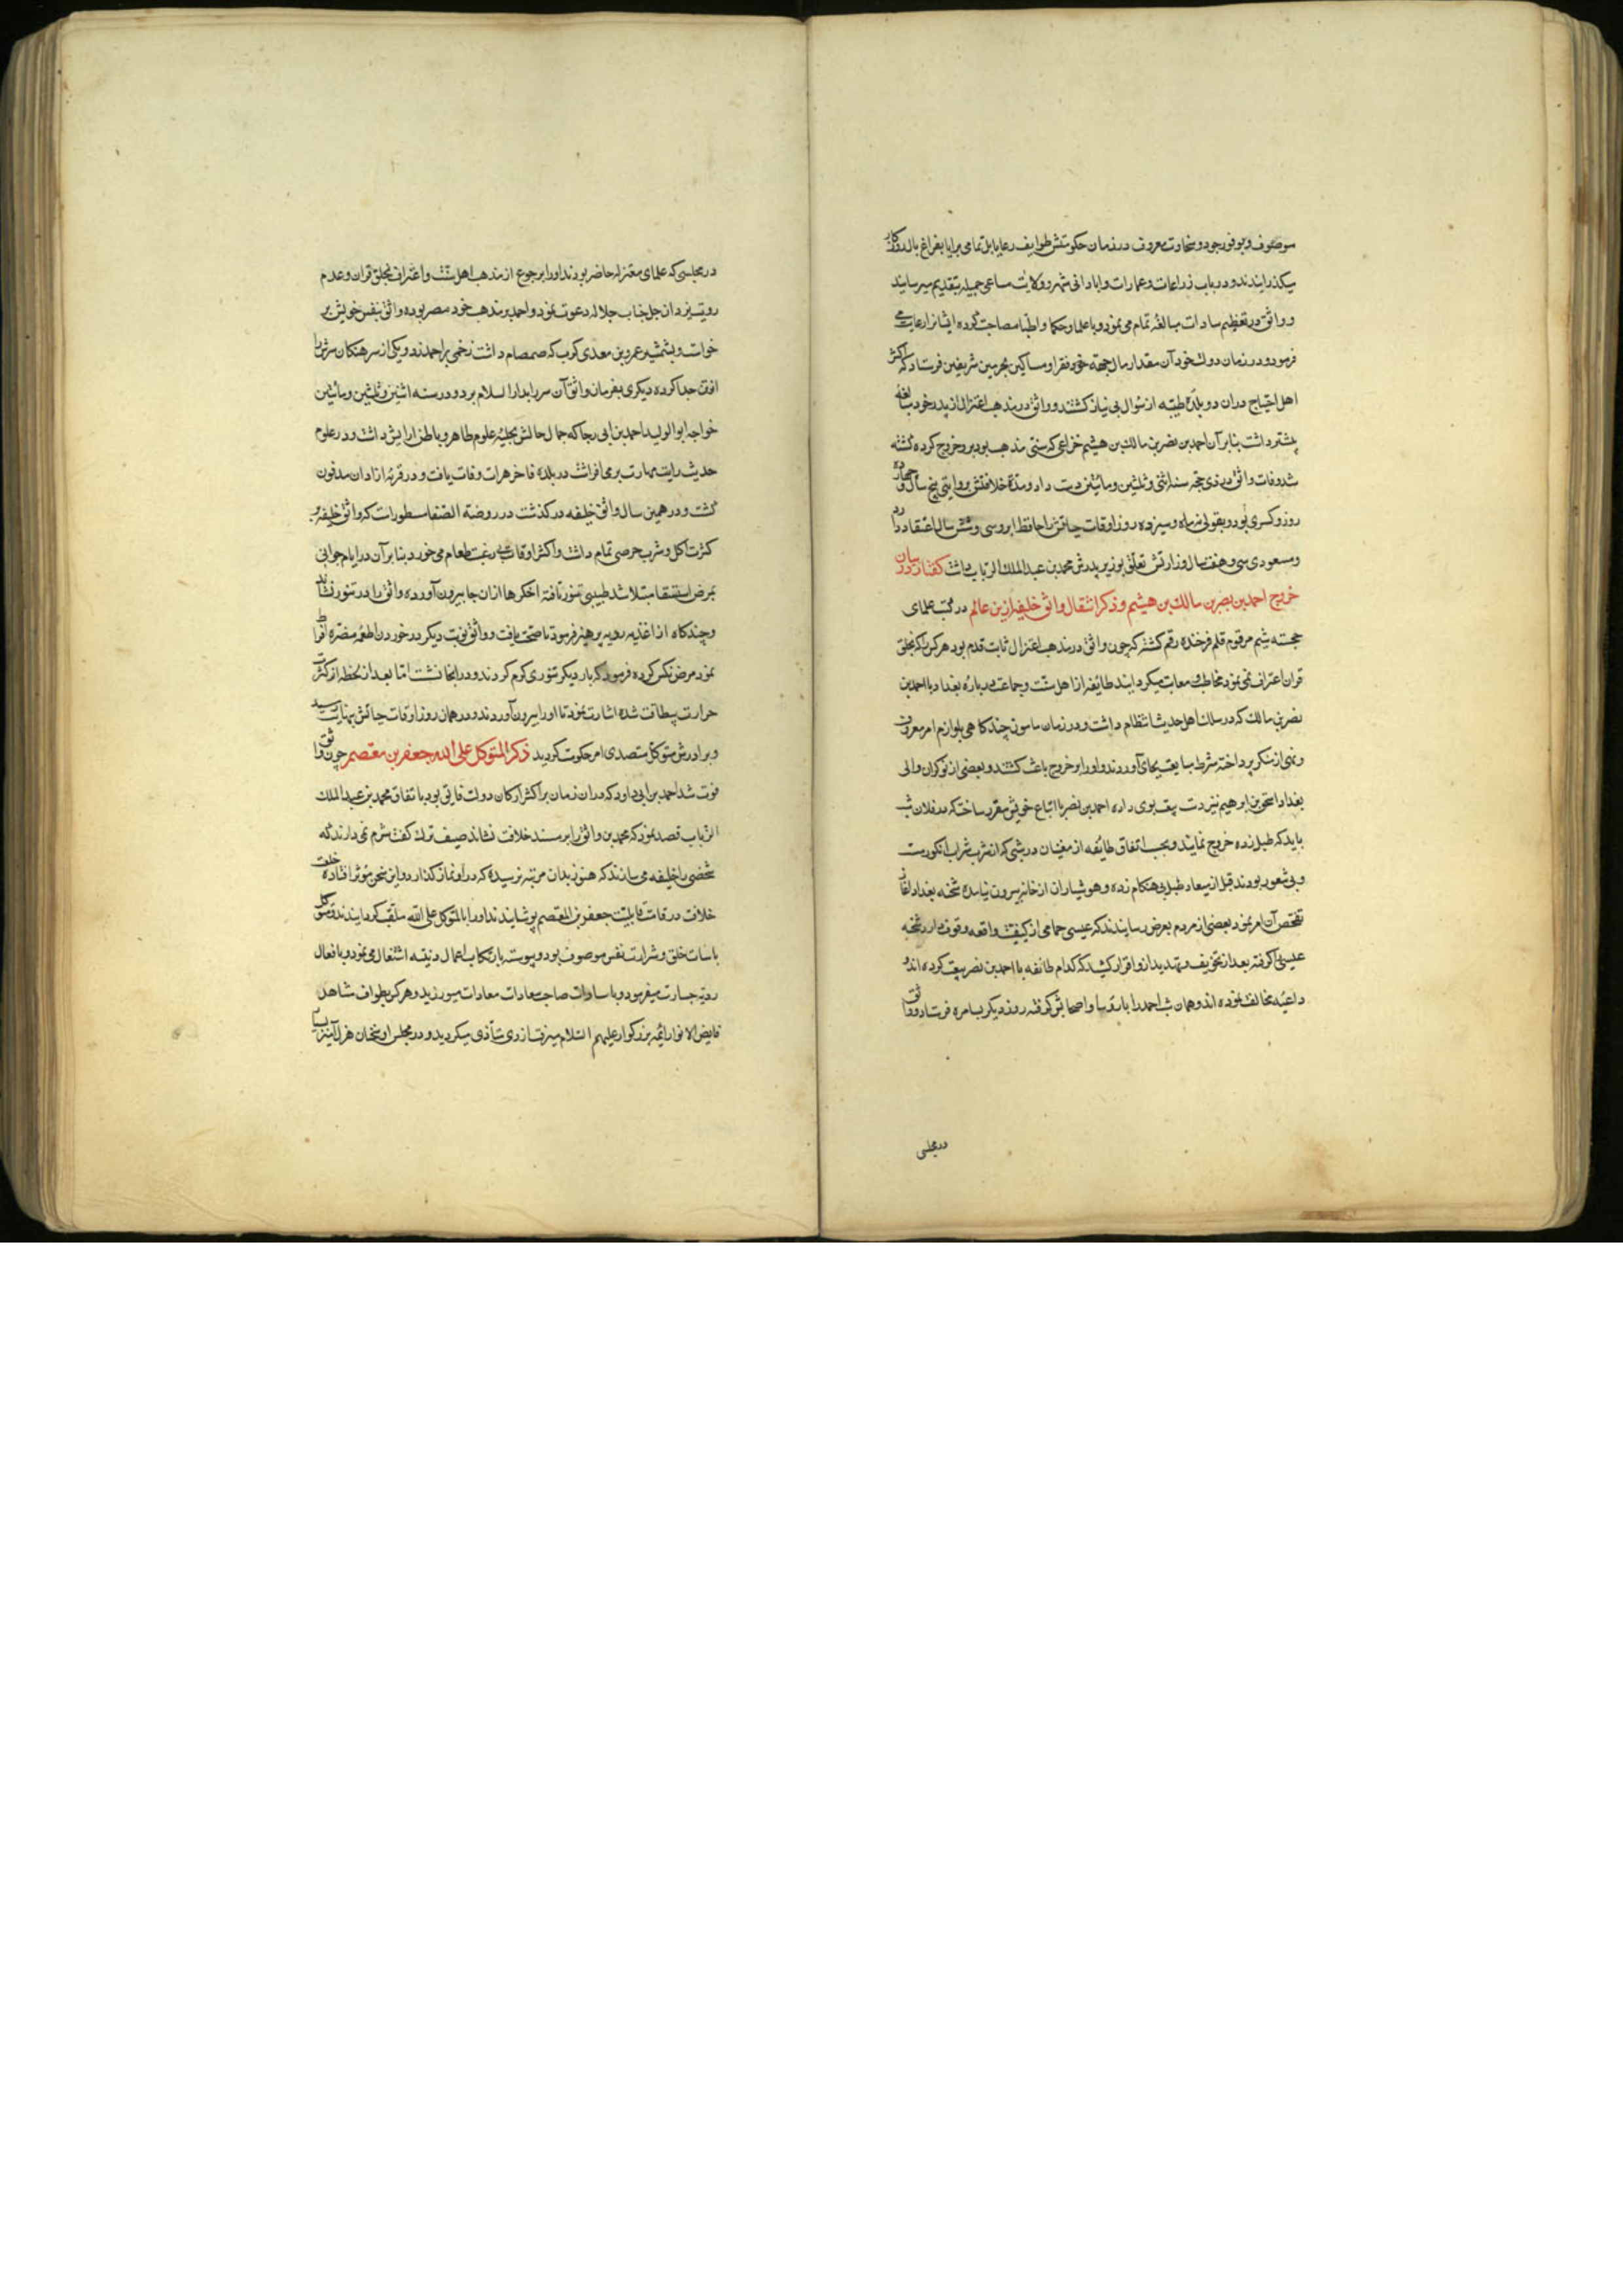 موصوف و بوفور جود و سخاوت معروف در زمان حکومتش طوایف رعایا بل تمامی برایا بفراغ بال روزکار
میکذرانیدند و در باب زراعات و عمارات و ابادانی شهر و ولایت مساعی جمیله بتقدیم میرسانیدند
و واثق در تعظیم سادات مبالغه تمام می نمود و با علما و حکما و اطبا مصاحبت کرده ایشانرا رعایت می
فرمود و در زمان دولت خود آن مقدار مال بجهة فقرا و مساکین بحرمین شریفین فرستاد که اکثر
اهل احتیاج در ان دو بلده طیبه از سؤال بی نیاز کشتند و واثق در مذهب اعتزال از پدر خود مبالغه
بیشتر داشت بنا بر آن احمد بن نصر بن مالك بن هیثم خزاعی که سنی مذهب بود برو خروج کرده کشته
شد وفات واثق در ذی حجه سنه اثنی و ثلثین و مائتین دست داد و مدة خلافتش بروایتی پنج سال و چهار
روز و کسری بود و بقولی نه ماه و سیزده روز اوقات حیاتش را حافظ ابرو سی و شش سال اعتقاد دارد
و مسعودی سی و هفت سال وزارتش تعلق بوزیر پدرش محمد بن عبد الملك الزیات داشت کفتار در بیان
خروج احمد بن نصر بن مالك بن هیثم و ذکر انتقال واثق خلیفه ازین عالم در کتب علمای
خجسته شیم مرقوم قلم فرخنده رقم کشته که چون واثق در مذهب اعتزال ثابت قدم بود هر کس که بخلق
قران اعتراف نمی نمود مخاطب و معاتب میکردانید طایفه از اهل سنت و جماعت در باره بغداد با احمد بن
نصر بن مالك که در سلك اهل حدیث انتظام داشت و در زمان مامون چند کاهی بلوازم امر معروف
و نهی از منکر پرداخته شرط مبایعت بجای آوردند و او را بر خروج باعث کشتند و بعضی از نوکران والی
بغداد اسحق بن ابرهیم نیز دست بیعت بوی داده احمد بن نصر با اتباع خویش مقرر ساخت که در فلان شب
باید که طبل زده خروج نمایند و بحسب اتفاق طائفه از مغنیان در شبی که از شرب شراب انکور مست
و بی شعور بودند قبل از میعاد طبل بی هنکام زده و هوشیاران از خانه بیرون نیامده شحنه بغداد اغاز
تفحص آن امر نمود بعضی از مردم بعرض رسانیدند که عیسی حمامی از کیفیت واقعه وقوف دارد شحنه
عیسی را کرفته بعد از تخویف و تهدید ازو اقرار کشید که کدام طائفه با احمد بن نصر بیعت کرده اند و
داعیه مخالفت نموده اند و همان شب احمد را با رؤسا و اصحابش کرفته روز دیکر بسامره فرستاد و واثق
در مجلسی
در مجلسی که علمای معتزله حاضر بودند او را برجوع از مذهب اهل سنت و اعتراف بخلق قران و عدم
رویت یزدان جل جناب جلاله دعوت نمود و احمد بر مذهب خود مصر بوده واثق بنفس خویش بر
خواست و بشمشیر عمرو بن معدی کرب که صمصام داشت زخمی بر احمد زد و یکی از سرهنکان سرش را
افق جدا کرده دیکری بفرمان واثق آن سر را بدار السلام برد و در سنه اثنین و ثلثین و مائتین
خواجه ابو الولید احمد بن ابی رجا که جمال حالش بحلیه علوم ظاهر و باطن ارایش داشت و در علوم
حدیث رایت مهارت بر می افراشت در بلده فاخره هرات وفات یافت و در قریه ازادان مدفون
کشت و در همین سال واثق خلیفه در کذشت در روضة الصفا مسطورات که واثق خلیفه بر
کثرت اکل و شرب حرصی تمام داشت و اکثر اوقات بی رغبت طعام می خورد بنا بر آن در ایام جوانی
بمرض استسقا مبتلا شد طبیبی تنور تافته اخکرها از ان جا بیرون آورده واثق را در تنور نشاند
و چندکاه از اغذیه ردیه پرهیز فرمود تا صحت یافت و واثق نوبت دیکر در خوردن اطعمه مضره افراط
نمود مرض نکس کرده فرمود که بار دیکر تنوری کرم کردند و در انجا نشست اما بعد از لحظه از کثرت
حرارت بیطاقت شده اشارت نمود تا او را بیرون آوردند و در همان روز اوقات حیاتش بنهایت رسید
و برادرش متوکل متصدی امر حکومت کردید ذکر المتوکل علی الله جعفر بن معتصم چون واثق
فوت شد احمد بن ابی داود که در ان زمان بر اکثر ارکان دولت فایق بود باتفاق محمد بن عبد الملك
الزیات قصد نمود که محمد بن واثق را بر مسند خلافت نشاند وصیف ترك کفت شرم نمی دارند که
شخصی را خلیفه می سازند که هنوز بدان مرتبه نرسیده که در او نماز کذارد و این سخن مؤثر افتاده خلعت
خلافت در قامت قابلیت جعفر بن المعتصم پوشانیدند او را با المتوکل علی الله ملقب کردانیدند و متوکل
باسات خلق و شرارت نفس موصوف بود و پیوسته بارتکاب اعمال دنیه اشتغال می نمود و بافعال
ردیه جسارت میفرمود و با سادات صاحب سعادات معادات میورزید و هر کس بطواف مشاهد
فایض الانوار ائمه بزرکوار علیهم السلام میرفت از وی متأذی میکردید و در مجلس او سخنان هزل آمیز بسیار